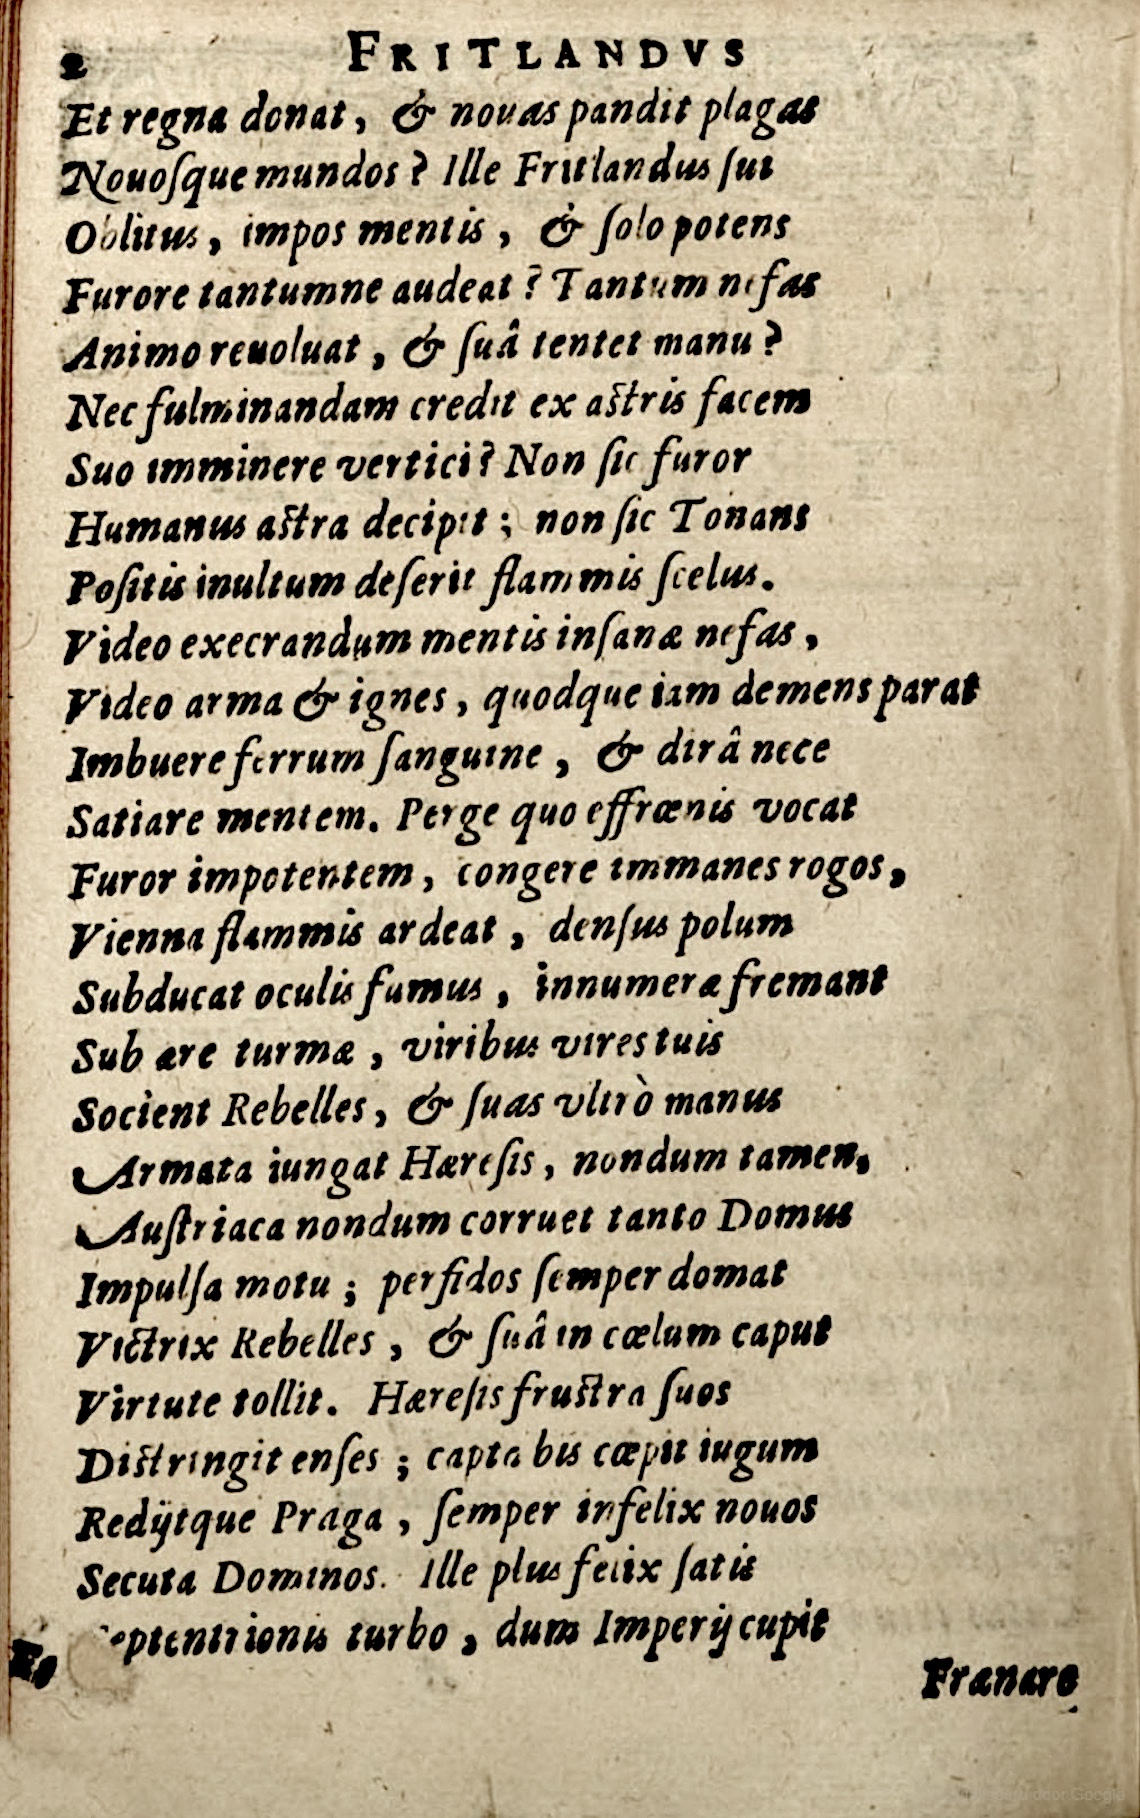 2 FRITLANDVS
Et regna donat, & nouas pandit plagas
Nouoſque mundos? Ille Fritlandus ſui
Oblitus, impos mentis, & ſolo potens
Furore tantumne audeat? Tantum nefas
Animo reuoluat, & ſuâ tentet manu?
Nec fulminandam credit ex aſtris facem
Suo imminere vertici? Non ſic furor
Humanus aſtra decipit; non ſic Tonans
Poſitis inultum deſerit flammis ſcelus.
Video execrandum mentis inſanæ nefas,
Video arma & ignes, quodque iam demens parat
Imbuere ferrum ſanguine, & dirâ nece
Satiare mentem. Perge quo effrænis vocat
Furor impotentem, congere immanes rogos,
Vienna flammis ardeat, denſus polum
Subducat oculis fumus, innumeræ fremant
Sub ære turmæ, viribus vires tuis
Socient Rebelles, & ſuas vltrò manus
Armata iungat Hæreſis, nondum tamen,
Auſtriaca nondum corruet tanto Domus
Impulſa motu; perfidos ſemper domat
Victrix Rebelles, & ſuâ in cœlum caput
Virtute tollit. Hæreſis fruſtra ſuos
Diſtringit enſes; capta bis cœpit iugum
Redijtque Praga, ſemper infelix nouos
Secuta Dominos. Ille plus felix ſatis
eptentrionis turbo, dum Imperij cupit
Frænare